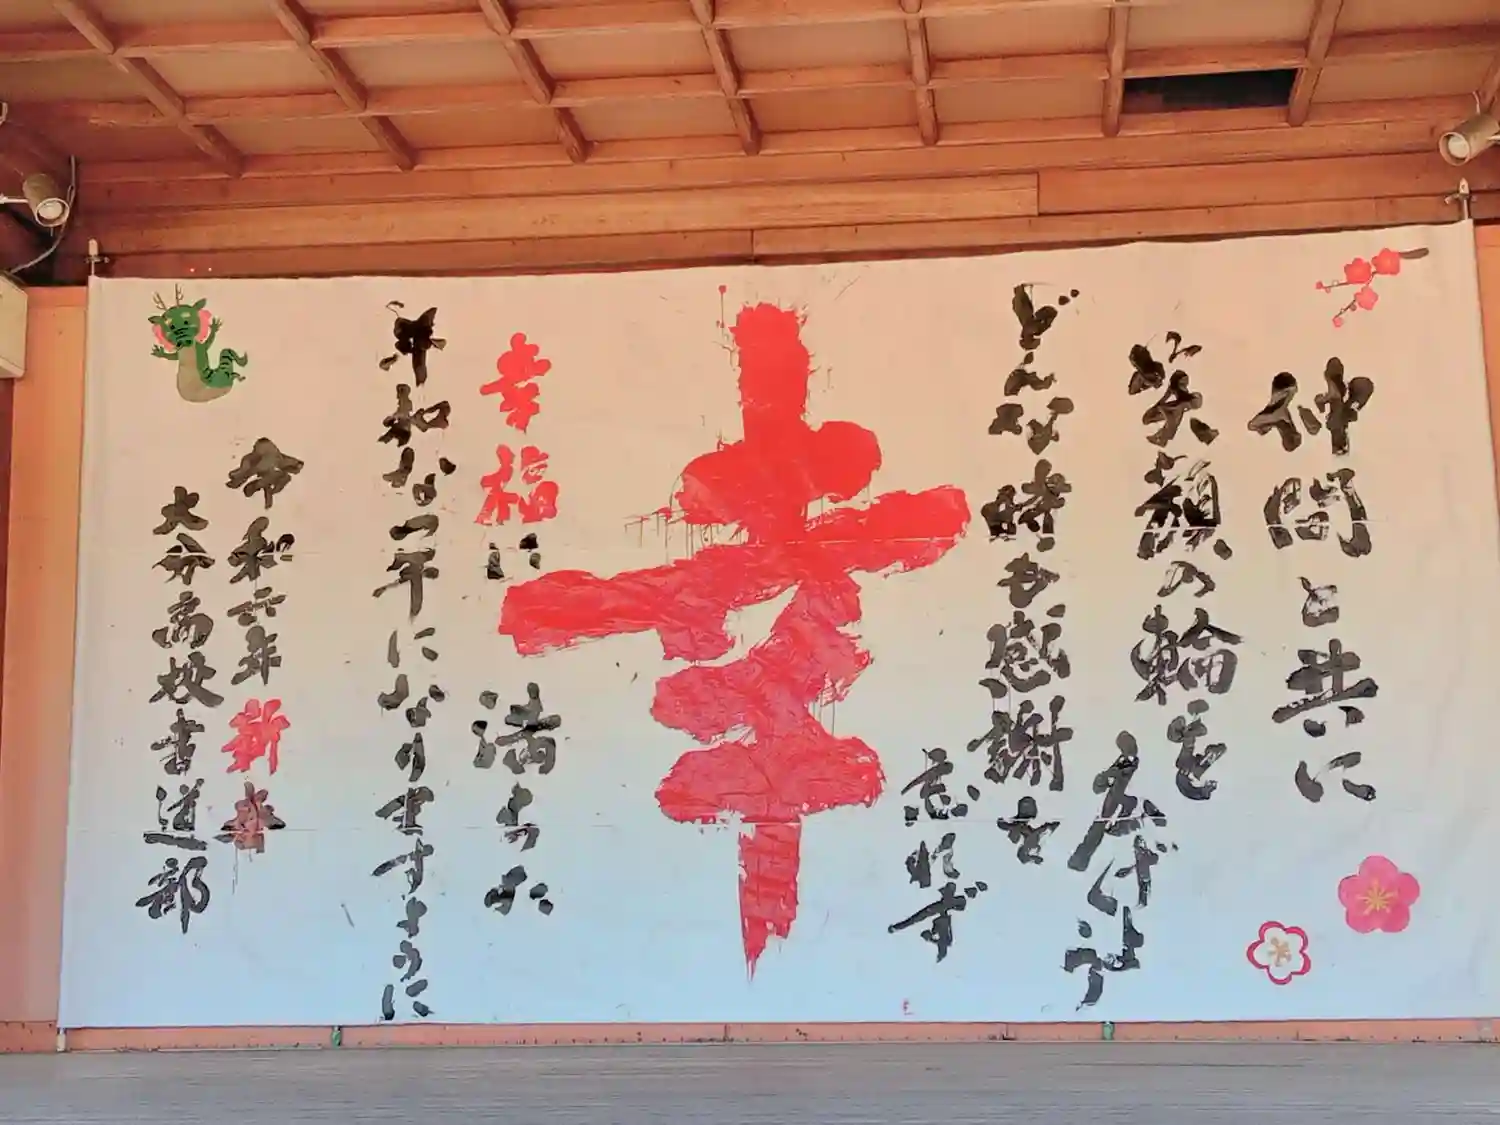 仲間と共に
笑顔の輪を
広げ
どんな時も感謝を
忘れず
幸
幸福に
満ちた
平和な一年に なりますように
令和六年 新春
大分高校書道部